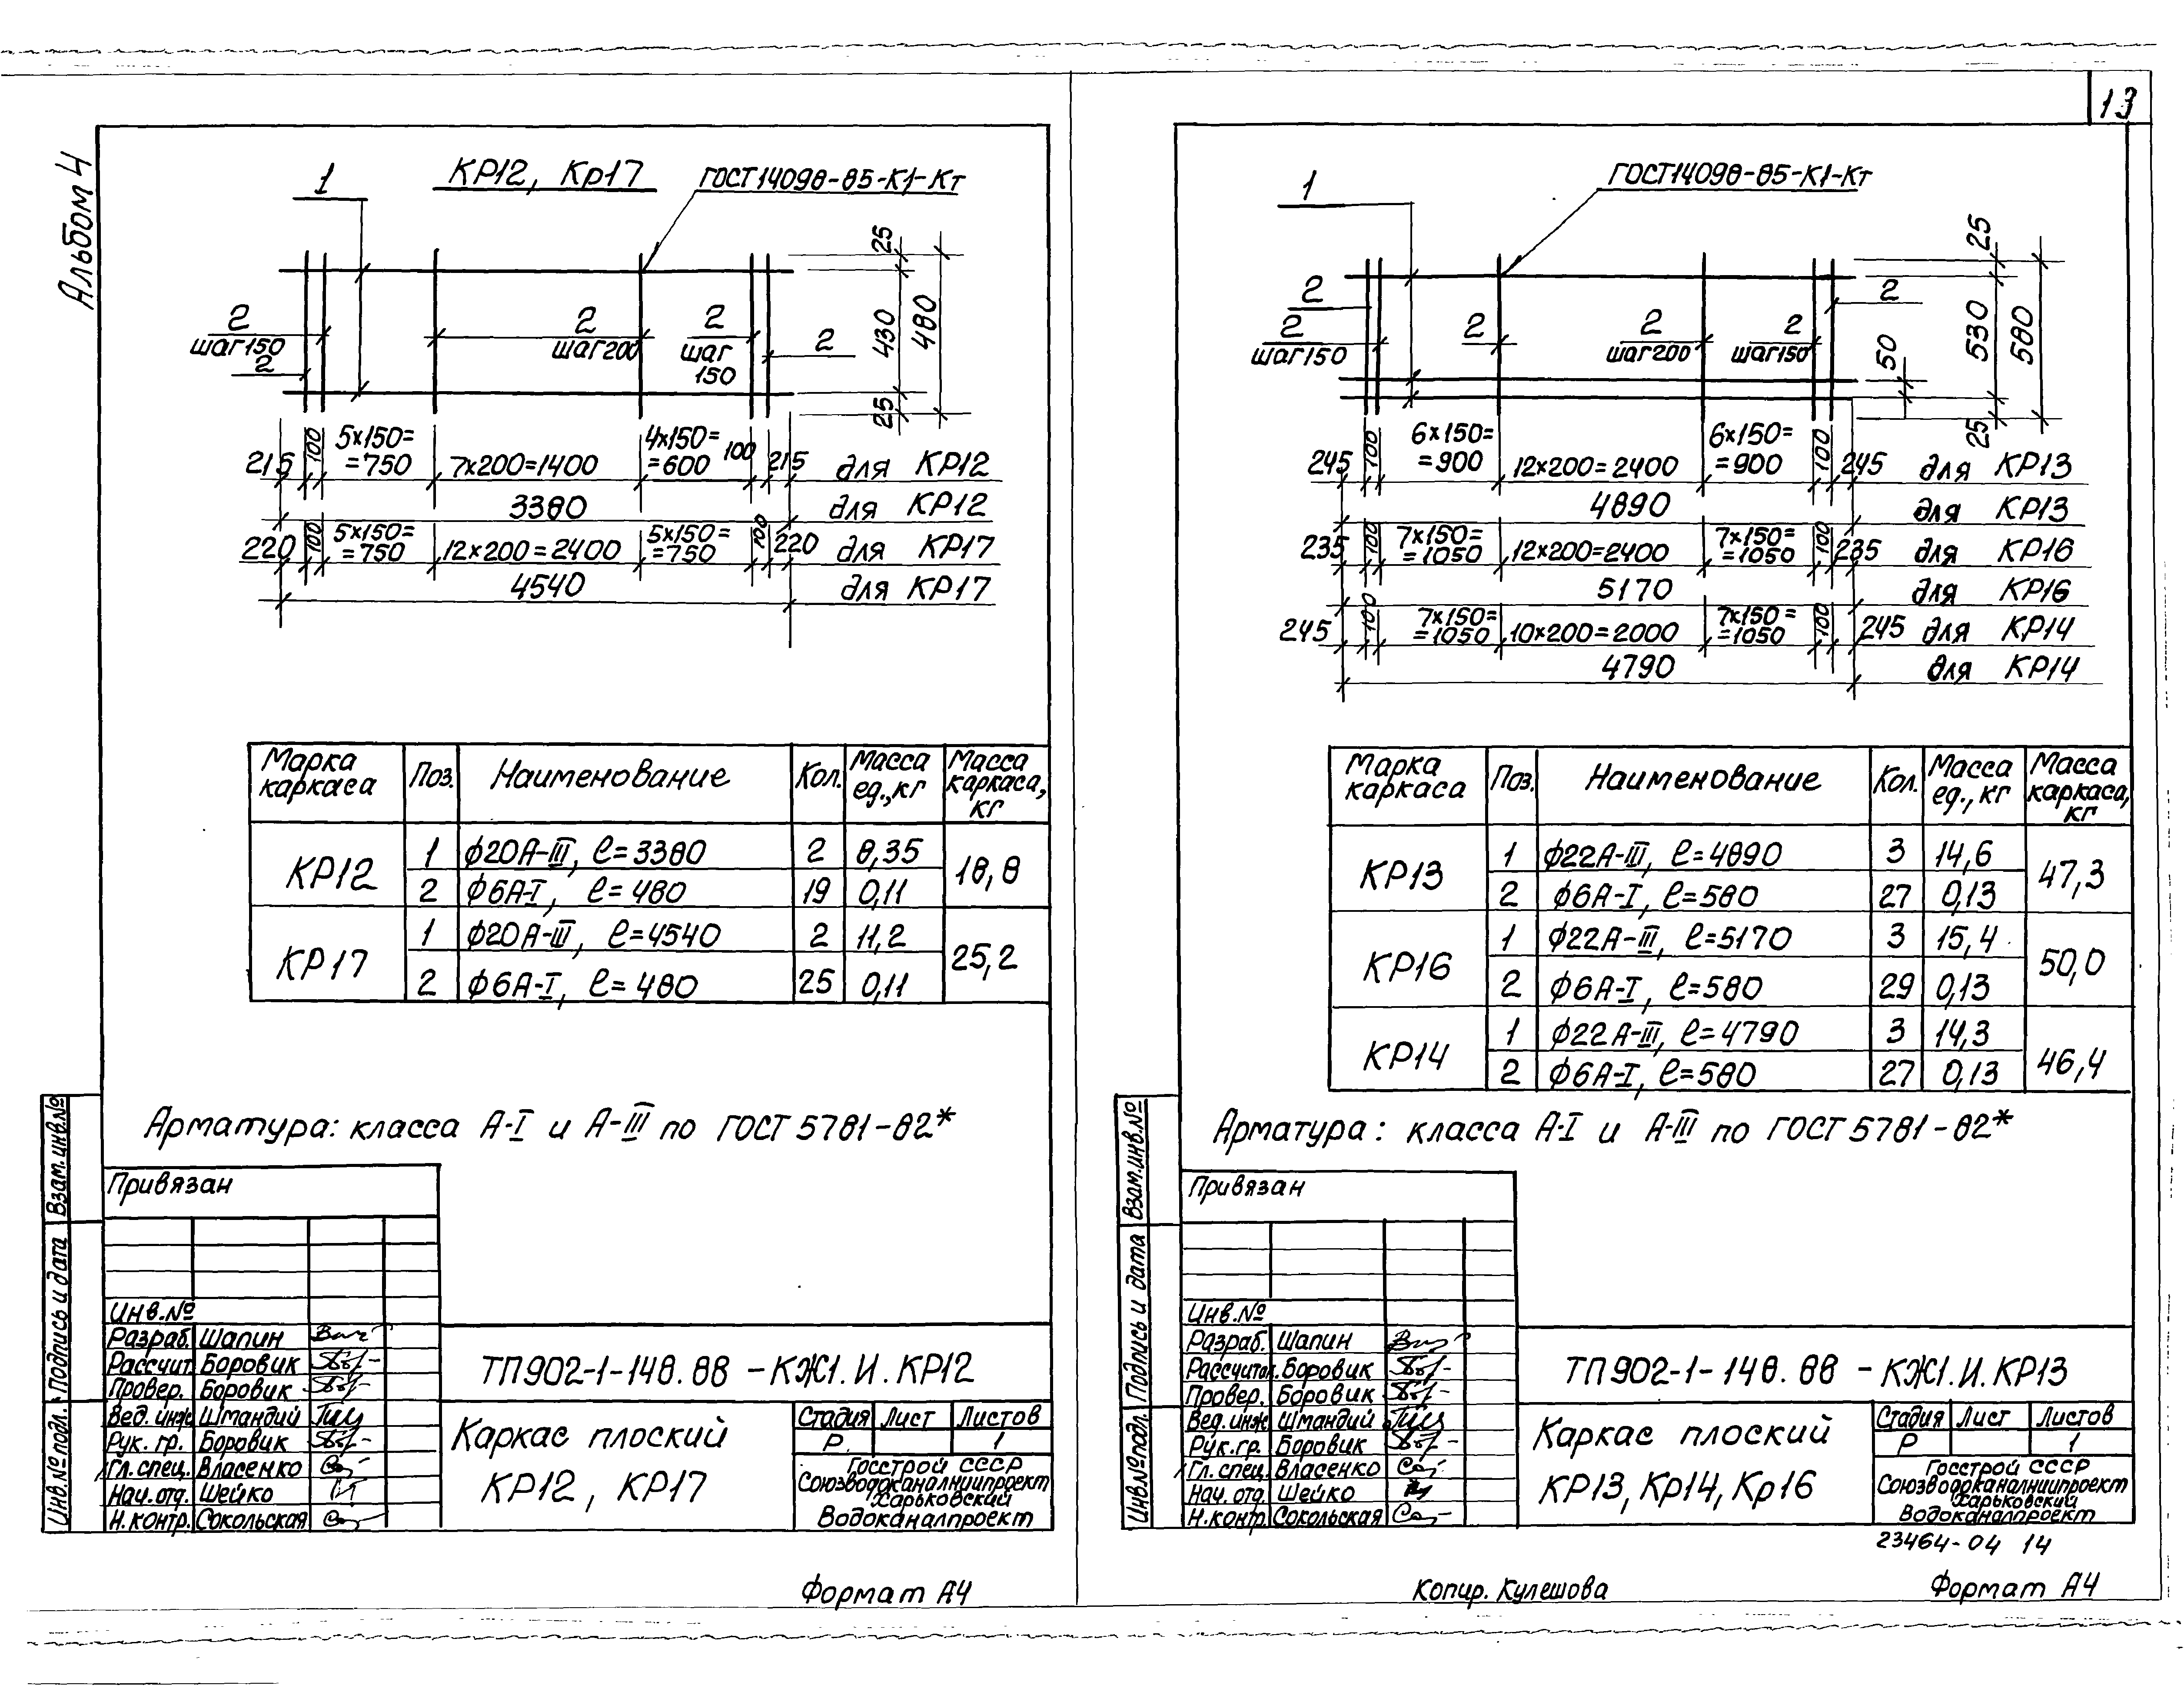 13
Альбом 4
КР12, Кр17
ГОСТ14098-85-К1-Кт
1
2
шаг150
2
2
шаг200
2
шаг
150
2
25
430
480
25
215 100 5х150= =750 7х200=1400 4х150= =600 100 215 для КР12
3380 для КР12
220 100 5х150= =750 12х200=2400 5х150= =750 100 220 для КР17
4540 для КР17
Марка каркаса Поз. Наименование Кол. Масса ед.,кг Масса каркаса, кг
КР12 1 ϕ20А-III, ℓ=3380 2 8,35 18,8
2 ϕ6А-I, ℓ=480 19 0,11
КР17 1 ϕ20А-III, ℓ=4540 2 11,2 25,2
2 ϕ6А-I, ℓ=480 25 0,11
Арматура: класса А-I и А-III по ГОСТ 5781-82*
Привязан
Инв.№
Разраб. Шапин
Рассчит. Боровик
Провер. Боровик
Вед. инж Шмандий
Рук. гр. Боровик
Гл. спец. Власенко
Нач. отд. Шейко
Н. контр. Сокольская
Инв.№ подл. Подпись и дата Взам.инв.№
ТП902-1-148.88 - КЖ1.И.КР12
Каркас плоский
КР12, КР17
Стадия Лист Листов
Р. 1
Госстрой СССР
Союзводоканалниипроект
Харьковский
Водоканалпроект
Формат А4
ГОСТ14098-85-К1-Кт
1
2
2
шаг150
2
2
шаг200
2
шаг150
2
50
25
530
580
25
245 100 6х150= =900 12х200=2400 6х150= =900 100 245 для КР13
4890 для КР13
235 100 7х150= =1050 12х200=2400 7х150= =1050 100 235 для КР16
5170 для КР16
245 100 7х150= =1050 10х200=2000 7х150= =1050 100 245 для КР14
4790 для КР14
Марка каркаса Поз. Наименование Кол. Масса ед., кг Масса каркаса, кг
КР13 1 ϕ22А-III, ℓ=4890 3 14,6 47,3
2 ϕ6А-I, ℓ=580 27 0,13
КР16 1 ϕ22А-III, ℓ=5170 3 15,4 50,0
2 ϕ6А-I, ℓ=580 29 0,13
КР14 1 ϕ22А-III, ℓ=4790 3 14,3 46,4
2 ϕ6А-I, ℓ=580 27 0,13
Арматура: класса А-I и А-III по ГОСТ 5781-82*
Привязан
Инв.№
Разраб. Шапин
Рассчитал. Боровик
Провер. Боровик
Вед. инж Шмандий
Рук. гр. Боровик
Гл. спец. Власенко
Нач. отд. Шейко
Н. контр. Сокольская
Инв.№подл. Подпись и дата Взам.инв.№
ТП902-1-148.88 - КЖ1.И.КР13
Каркас плоский
КР13, Кр14, Кр16
Стадия Лист Листов
Р 1
Госстрой СССР
Союзводоканалниипроект
Харьковский
Водоканалпроект
23464-04 14
Копир. Кулешова
Формат А4